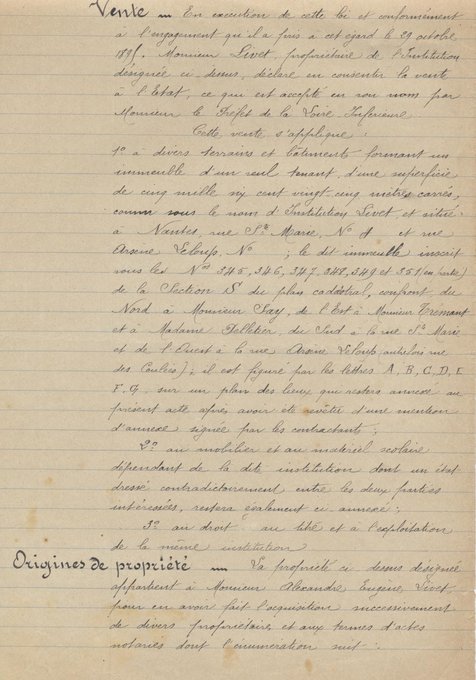 Vente — En execution de cette loi et conformément
à l'engagement qu'il a pris à cet égard le 29 octobre
1895. Monsieur Livet, propriétaire de l'Institution
désignée ci dessus, déclare en consentir la vente
à l'Etat, ce qui est accepté en son nom par
Monsieur le Préfet de la Loire Inférieure
Cette vente s'applique :
1° à divers terrains et bâtiments formant un
immeuble d'un seul tenant, d'une superficie
de cinq mille six cent vingt cinq mètres carrés,
connu sous le nom d'Institution Livet et situé
à Nantes, rue Ste Marie, No 1 et rue
Arsène Leloup, No ; le dit immeuble inscrit
sous les Nos 345, 346, 347, 348, 349 et 351 (en partie)
de la Section S du plan cadastral, confront du
Nord à Monsieur Say, de l'Est à Monsieur Tremant
et à Madame Pelletier, du Sud à la rue Ste Marie
et de l'Ouest à la rue Arsène Leloup autrefois rue
des Coulées) ; il est figuré par les lettres A, B, C, D, E
F. G. sur un plan des lieux qui restera annexé au
présent acte après avoir été revêtu d'une mention
d'annexe signée par les contractants ;
2° au mobilier et au matériel scolaire
dépendant de la dite institution dont un état
dressé contradictoirement, entre les deux parties
intéressées, restera également ci annexé ;
3° au droit au titre et à l'exploitation
de la même institution
Origines de propriété — La propriété ci dessus désignée
appartient à Monsieur Alexandre Eugène Livet,
pour en avoir fait l'acquisition successivement
de divers propriétaires et aux termes d'actes
notariés dont l'énumération suit :